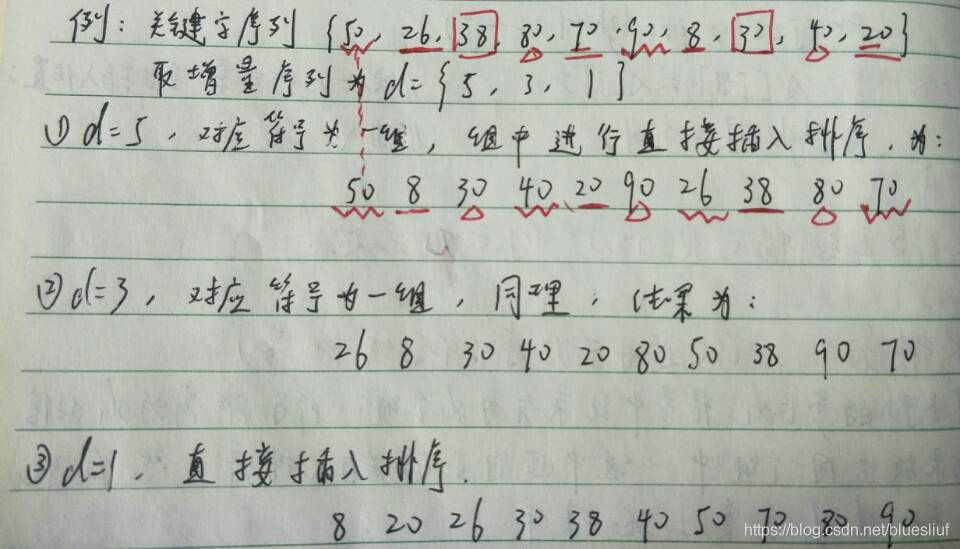 例：关键字序列 {50, 26, 38, 80, 70, 90, 8, 30, 40, 20}
取增量序列为 d={5, 3, 1}
① d=5, 对应符号为一组, 组中进行直接插入排序, 为:
50 8 30 40 20 90 26 38 80 70
② d=3, 对应符号为一组, 同理, 结果为:
26 8 30 40 20 80 50 38 90 70
③ d=1, 直接插入排序.
8 20 26 30 38 40 50 70 80 90
https://blog.csdn.net/bluesliuf